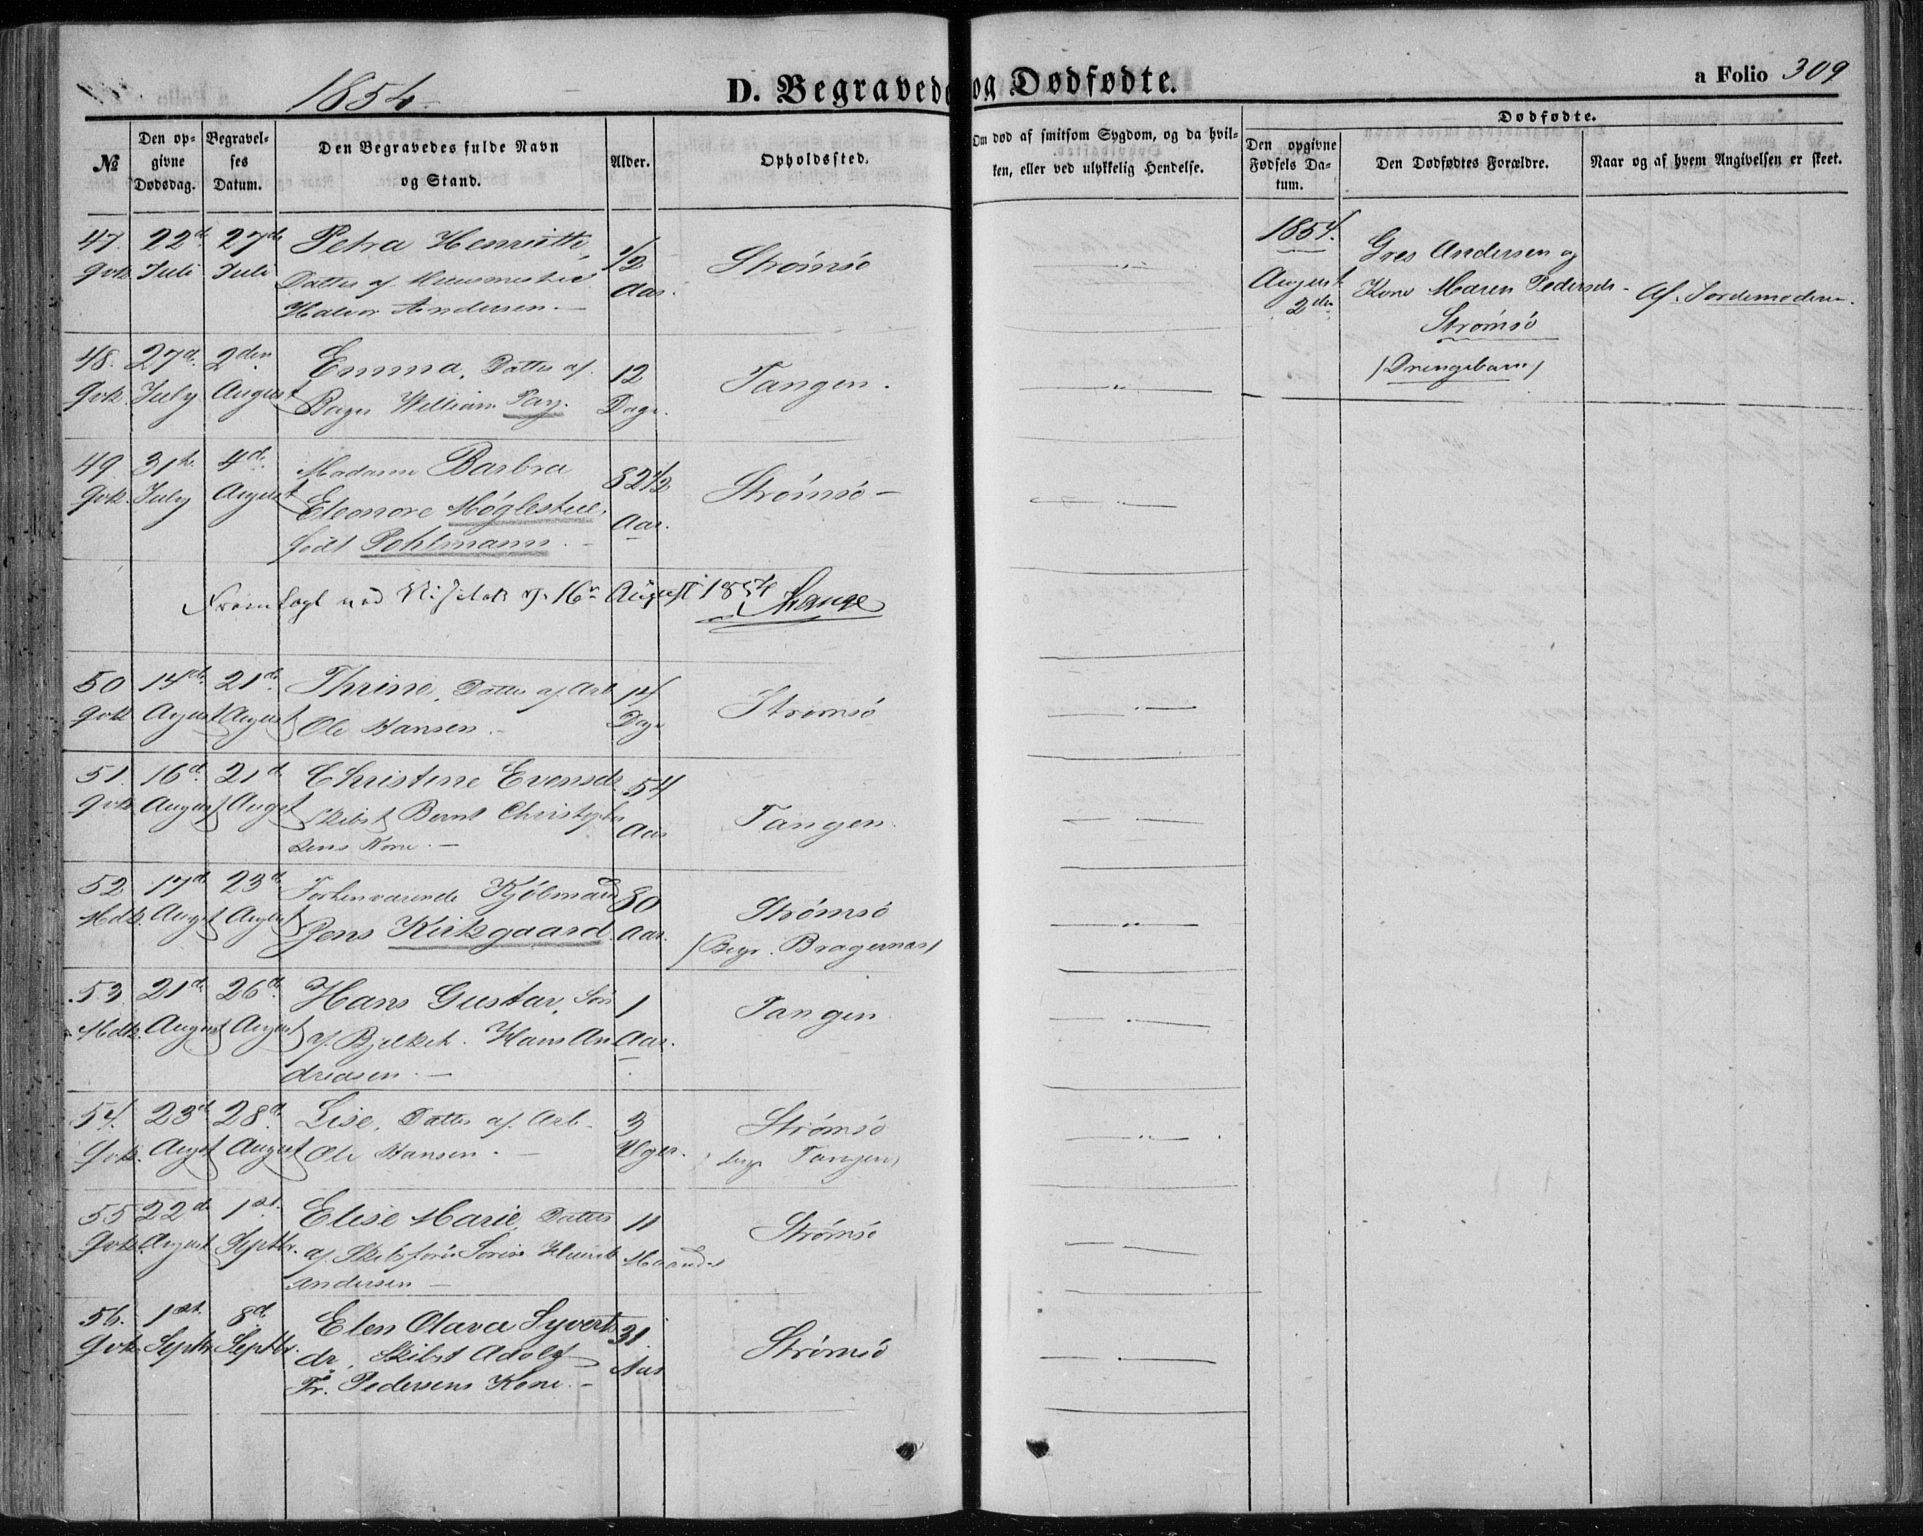 1854.
D. Begravede og Dødfødte.
a Folio 309
№
Den opgivne Dødsdag.
Begravelses Datum.
Den Begravedes fulde Navn og Stand.
Alder.
Opholdssted.
Om død af smitsom Sygdom, og da hvilken, eller ved ulykkelig Hendelse.
Dødfødte.
Den opgivne Fødsels Datum.
Den Dødfødtes Forældre.
Naar og af hvem Angivelsen er skeet.
47. 22d 27de Petra Henriette, 1/2 Strømsø
Qvk. Juli Juli Datter af Aar.
Halvor Andersen. —
48. 27d. 2den Emma, Datter af 12 Tangen.
Qvk. July August Bager William Pay. Dage
49. 31te 4de Madame Barbra 82 1/2 Strømsø —
Qvk. July August Eleonore Møglestue, Aar.
født Pohlmann. —
August 1854
50 14de 21de Thrine, Datter af Arb 14 Strømsø
Qvk August August Ole Hansen. Dage
51. 16d. 21d Christine Evensdr 54 Tangen.
Qvk. August Augst Skibst Bernt Christopher Aar
sens Kone. —
52 17d 23d Forhenværende Kjøbmand 80 Strømsø
Mdk. Augst August Jens Kirkgaard Aar. (Begr. Bragernæs)
53. 21d 26d. Hans Gustav, Søn 1 Tangen
Mdk. August August af Hans An Aar.
dreasen. —
54. 23d 28d. Lise, Datter af Arb. 3 Strømsø
Qvk. Augst August Ole Hansen. — Uger. Tangen)
55 22d 1ste. Elise Marie, Datter 11 Strømsø
Qvk. August Septbr. af Skibsfører Maander
Andersen —
56. 1ste. 8d. Elen Olava Syverts 31 Strømsø
Qvk Septbr Septbr. dr, Skibst Adolf Aar
Fr. Pedersens Kone. —
1854.
August 2den
Andersen og
Kone Maren Pedersdr
Strømsø
(Drengebarn)
Af Jordemoderen.